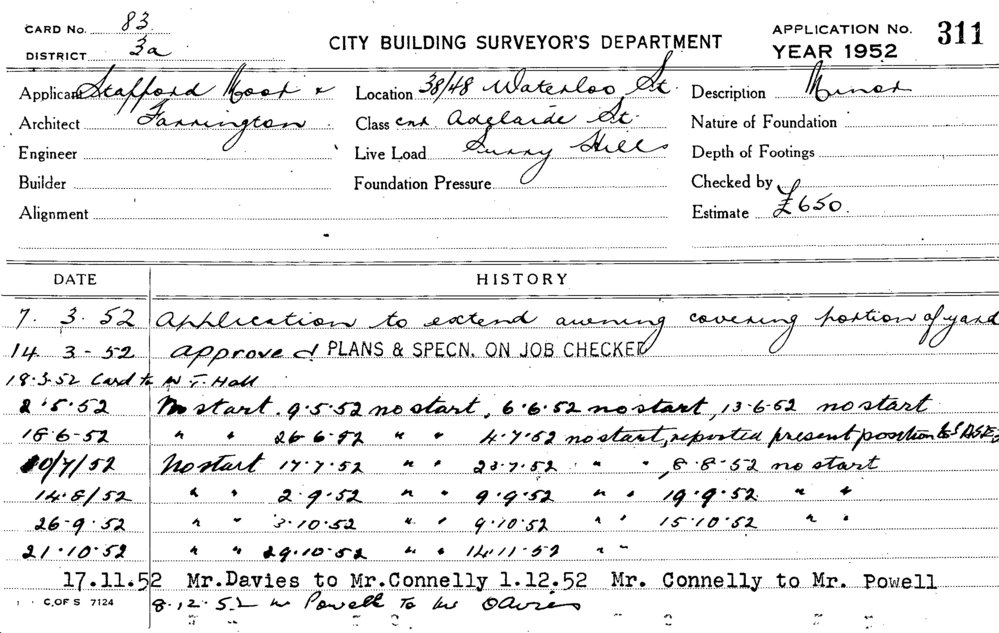 CARD No. 83
DISTRICT 3a
CITY BUILDING SURVEYOR'S DEPARTMENT
APPLICATION No. 311
YEAR 1952
Applicant Stafford Moor &
Architect Farrington
Engineer
Builder
Alignment
Location 38/48 Waterloo St.
Class cnr Adelaide St.
Live Load Surry Hills
Foundation Pressure
Description Minor
Nature of Foundation
Depth of Footings
Checked by
Estimate £650.
DATE HISTORY
7. 3. 52 Application to extend awning covering portion of yard
14 3-52 approved PLANS & SPECN. ON JOB CHECKED
18.3.52 Card to W T. Hall
2.5.52 No start. 9.5.52 no start, 6.6.52 no start, 13-6-52 no start
18-6-52 " " 26-6-52 " " 4.7.52 no start, reported present position to
10/7/52 No start 17.7.52 " " 23.7.52 " " , 8-8-52 no start
14.8/52 " " 2.9.52 " " 9.9.52 " " 19.9.52 " "
26-9.52 " " 3.10.52 " " 9.10.52 " " 15.10.52 " "
21.10.52 " " 29.10.52 " " 14.11.52 " "
17.11.52 Mr.Davies to Mr.Connelly 1.12.52 Mr. Connelly to Mr. Powell
C.OF S 7124 8.12.52 Mr Powell To Mr Davies